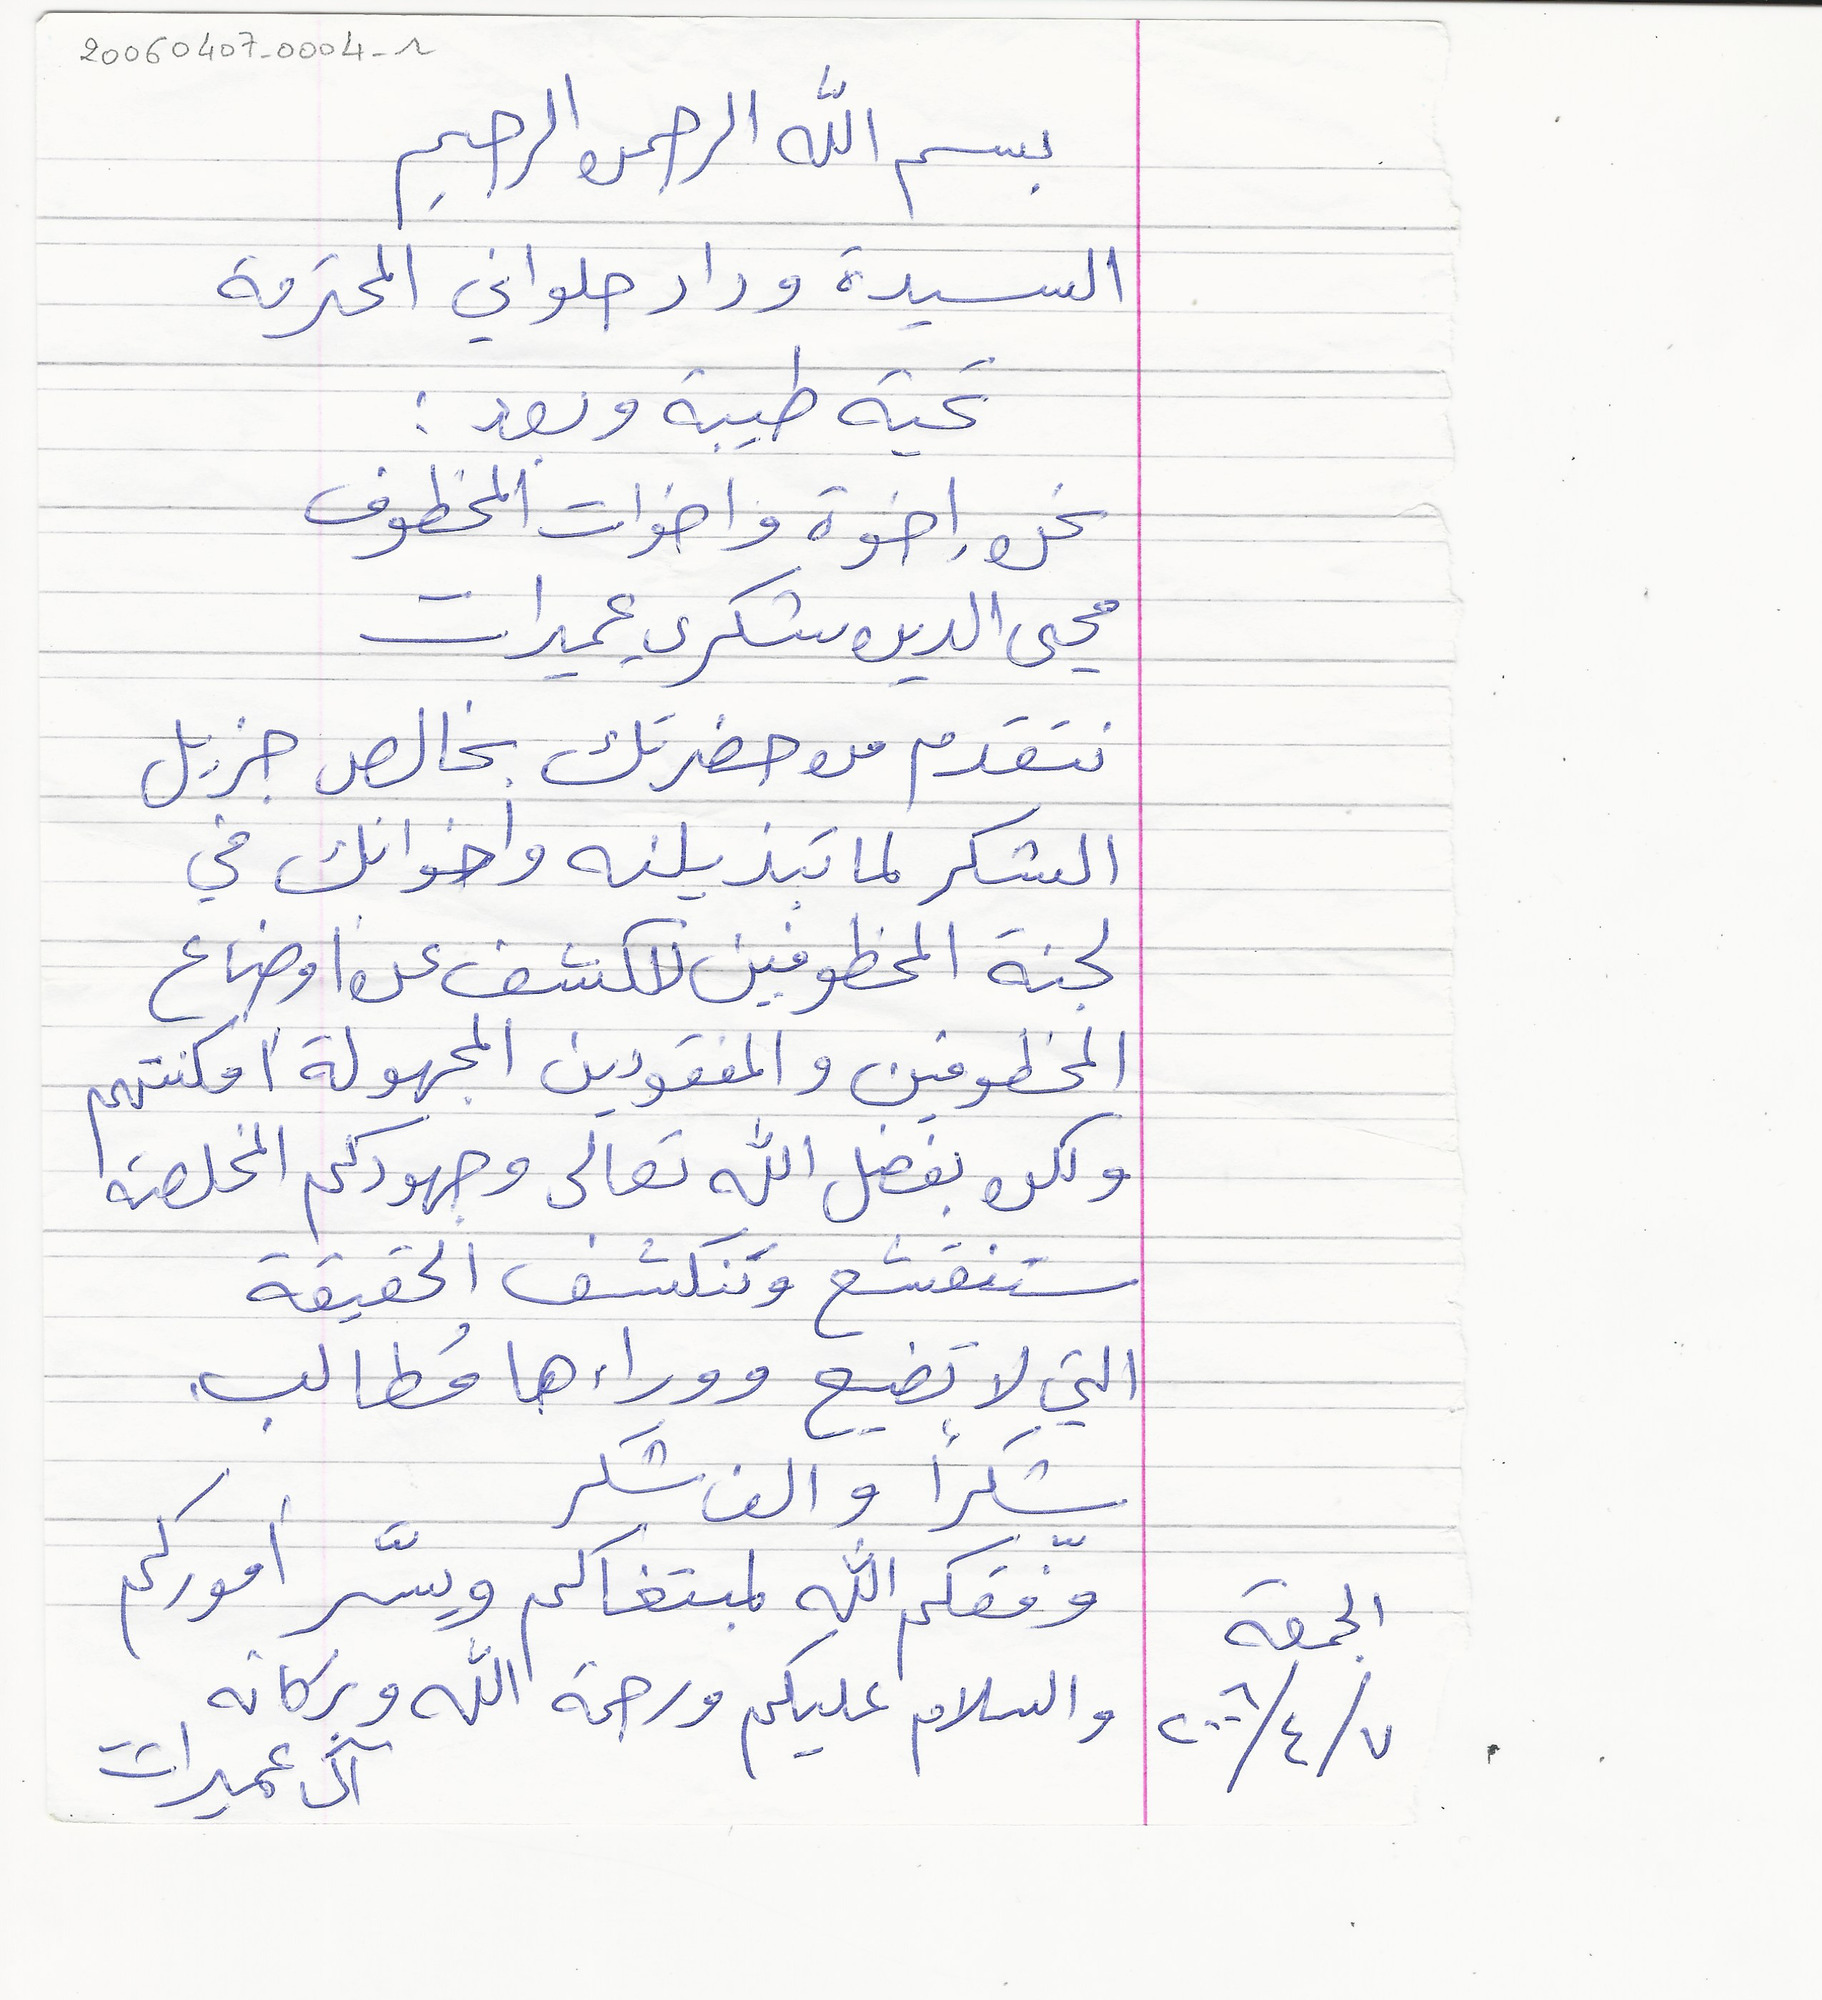 20060407-0004-r
بسم الله الرحمن الرحيم
السيدة وداد حلواني المحترمة
تحية طيبة وبعد :
نحن إخوة واخوات المخطوف
محيى الدين شكري عميرات
نتقدم من حضرتك بخالص جزيل
الشكر لما تبذيلنه واخوانك في
لجنة المخطوفين للكشف عن اوضاع
المخطوفين والمفقودين المجهولة أمكنتهم
ولكن بفضل الله تعالى وجهودكم المخلصة
ستنقشع وتنكشف الحقيقة
التي لا تضيع ووراءها مُطالب.
شكراً والف شكر
وفّقكم الله لمبتغاكم ويسّر أموركم
والسلام عليكم ورحمة الله وبركاته
آل عميرات
الجمعة
٧/٤/٢٠٠٦